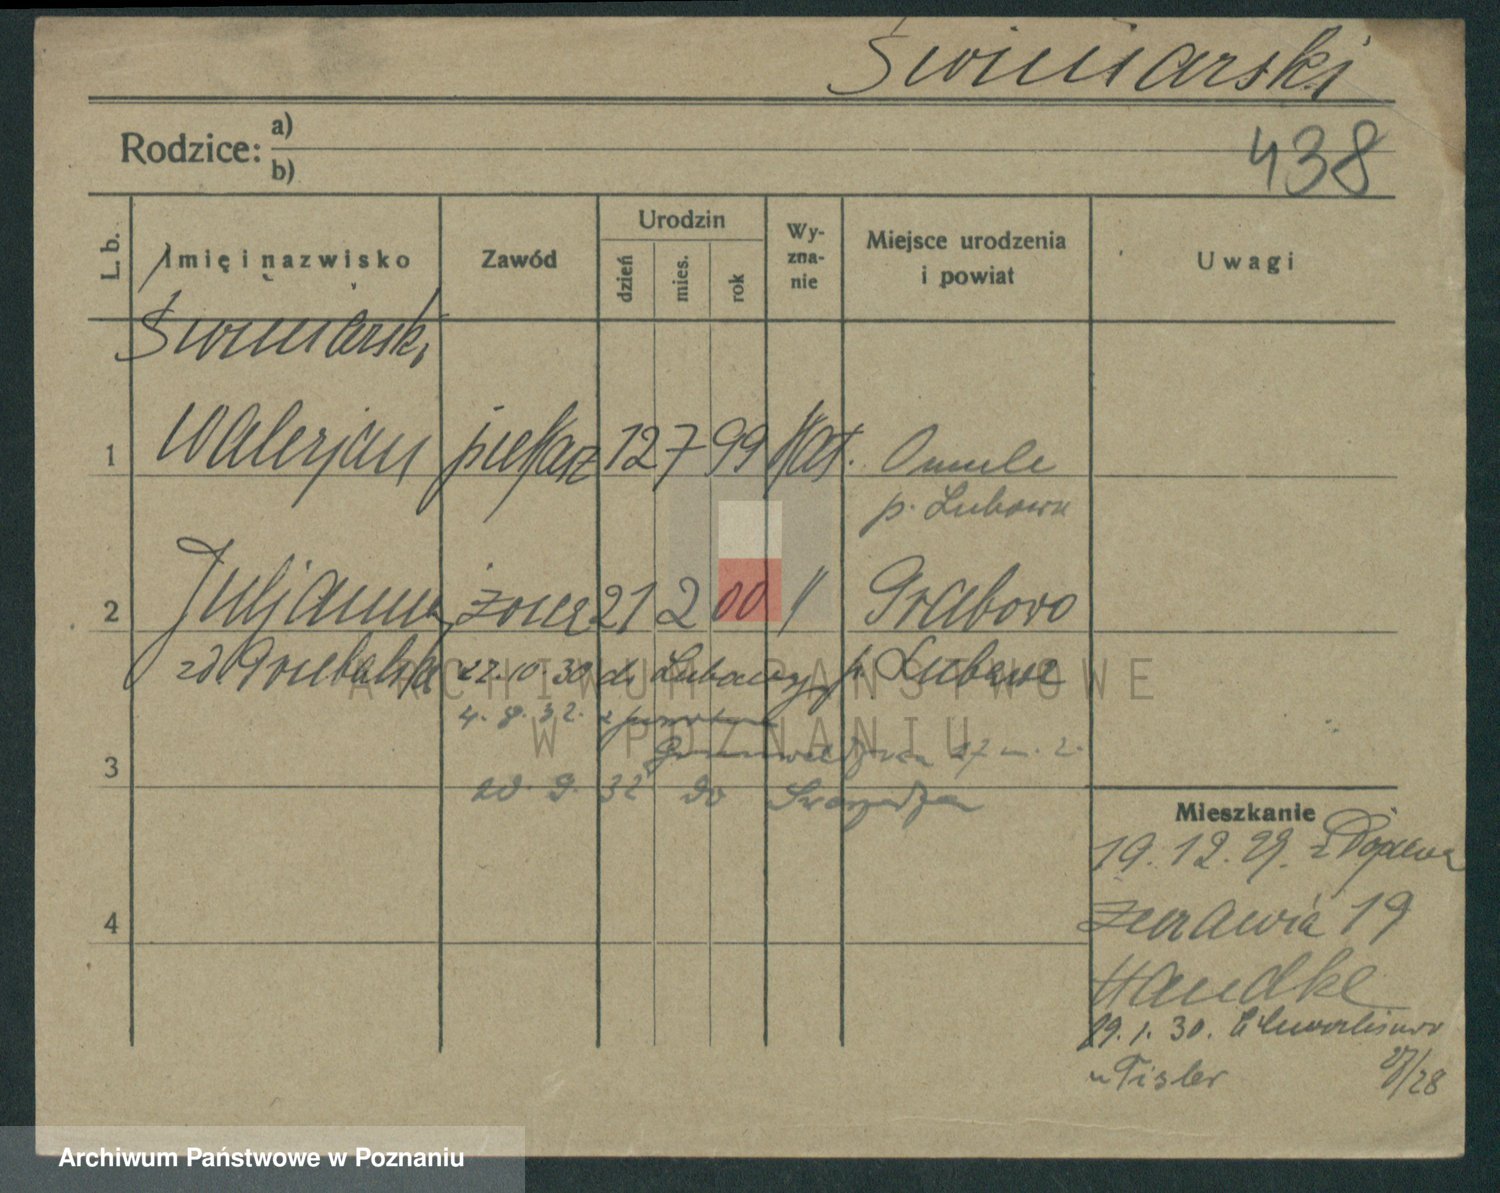 Świniarski
Rodzice: a)
b)
438
L. b.
Imię i nazwisko
Zawód
Urodzin
dzień
mies.
rok
Wy-
zna-
nie
Miejsce urodzenia
i powiat
Uwagi
Świniarski
1 Walerjan piekarz 12 7 99 Kat.
p.
2 Juljanna żona 21 2 00 " Grabowo
zd. 27.10.30 do p.
4. 8. 32. z powrotem
27 m. 2.
3
20. 9. 32 do Swarzędza
Mieszkanie
19. 12. 29. z Dopiewa
Żurawia 19
4
Handke
29. 1. 30.
u Tisler 27/28
ARCHIWUM PAŃSTWOWE
W POZNANIU
Archiwum Państwowe w Poznaniu